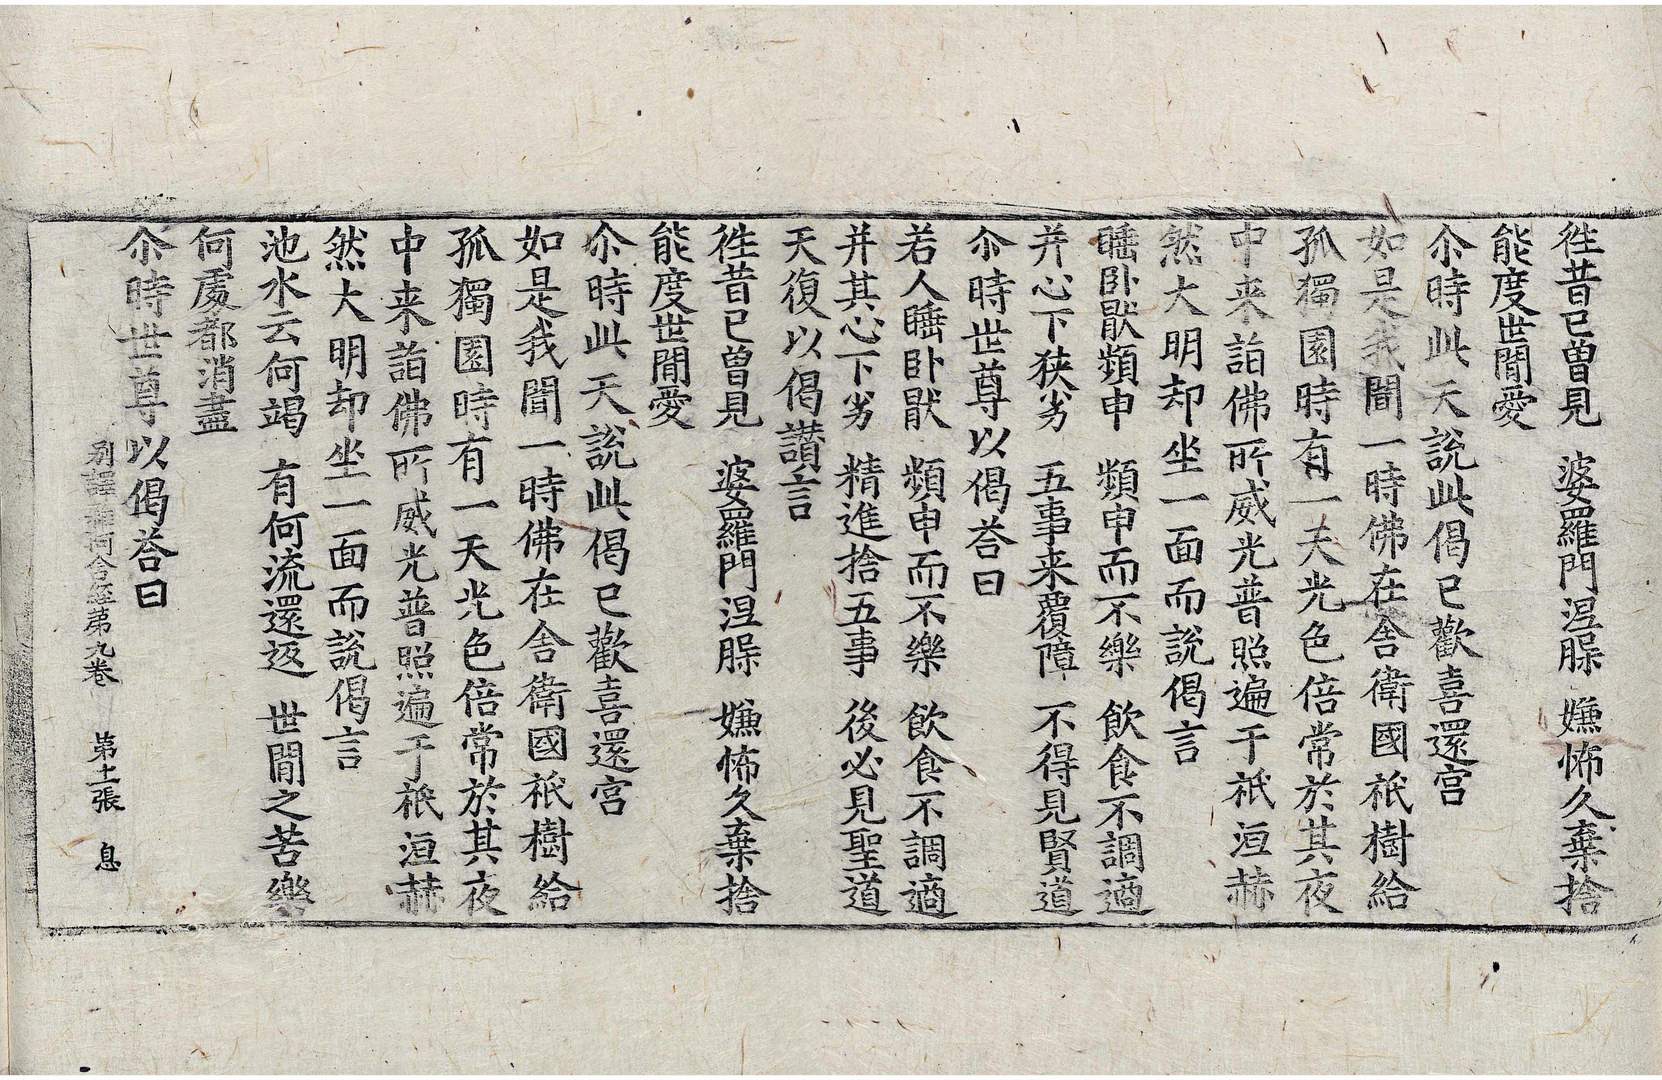 徃昔已曾見　婆羅門涅脲　嫌怖久棄捨
能度世閒愛
尒時此天說此偈已歡喜還宫
如是我聞一時佛在舎衛國祇樹給
孤獨園時有一天光色倍常於其夜
中来詣佛所威光普照遍于祇洹赫
然大明却坐一面而說偈言
睡卧猒頻申　頻申而不樂　飲食不調適
并心下狭劣　五事来覆障　不得見賢道
尒時世尊以偈荅曰
若人睡卧猒　頻申而不樂　飲食不調適
并其心下劣　精進捨五事　後必見聖道
天復以偈讃言
徃昔已曾見　婆羅門涅脲　嫌怖久棄捨
能度世閒愛
尒時此天說此偈已歡喜還宫
如是我聞一時佛在舎衛國祇樹給
孤獨園時有一天光色倍常於其夜
中来詣佛所威光普照遍于祇洹赫
然大明却坐一面而說偈言
池水云何竭　有何流還返　世閒之苦樂
何處都消盡
尒時世尊以偈荅曰
别譯雜阿含経苐九巻　苐十二張　息